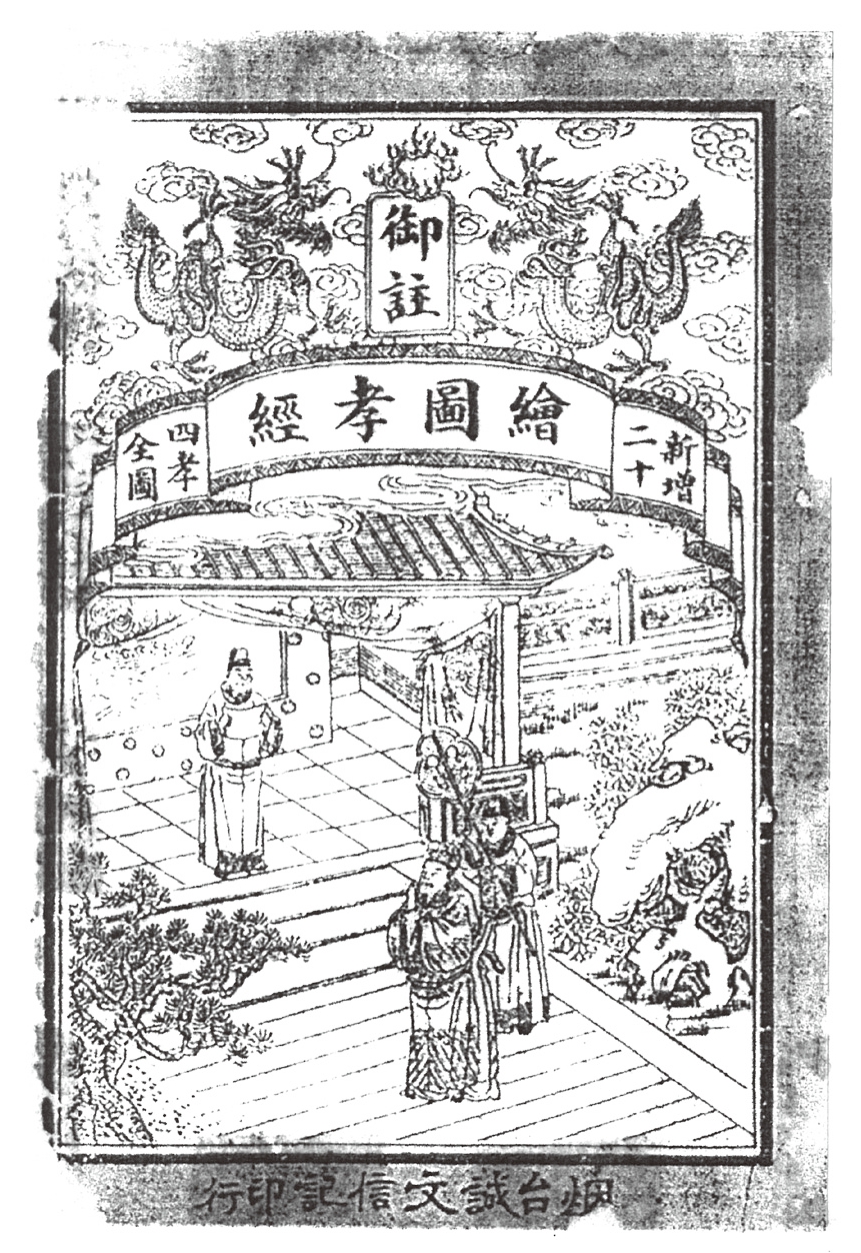 御註
繪圖孝經
新增
二十
四孝
全圖
烟台誠文信記印行